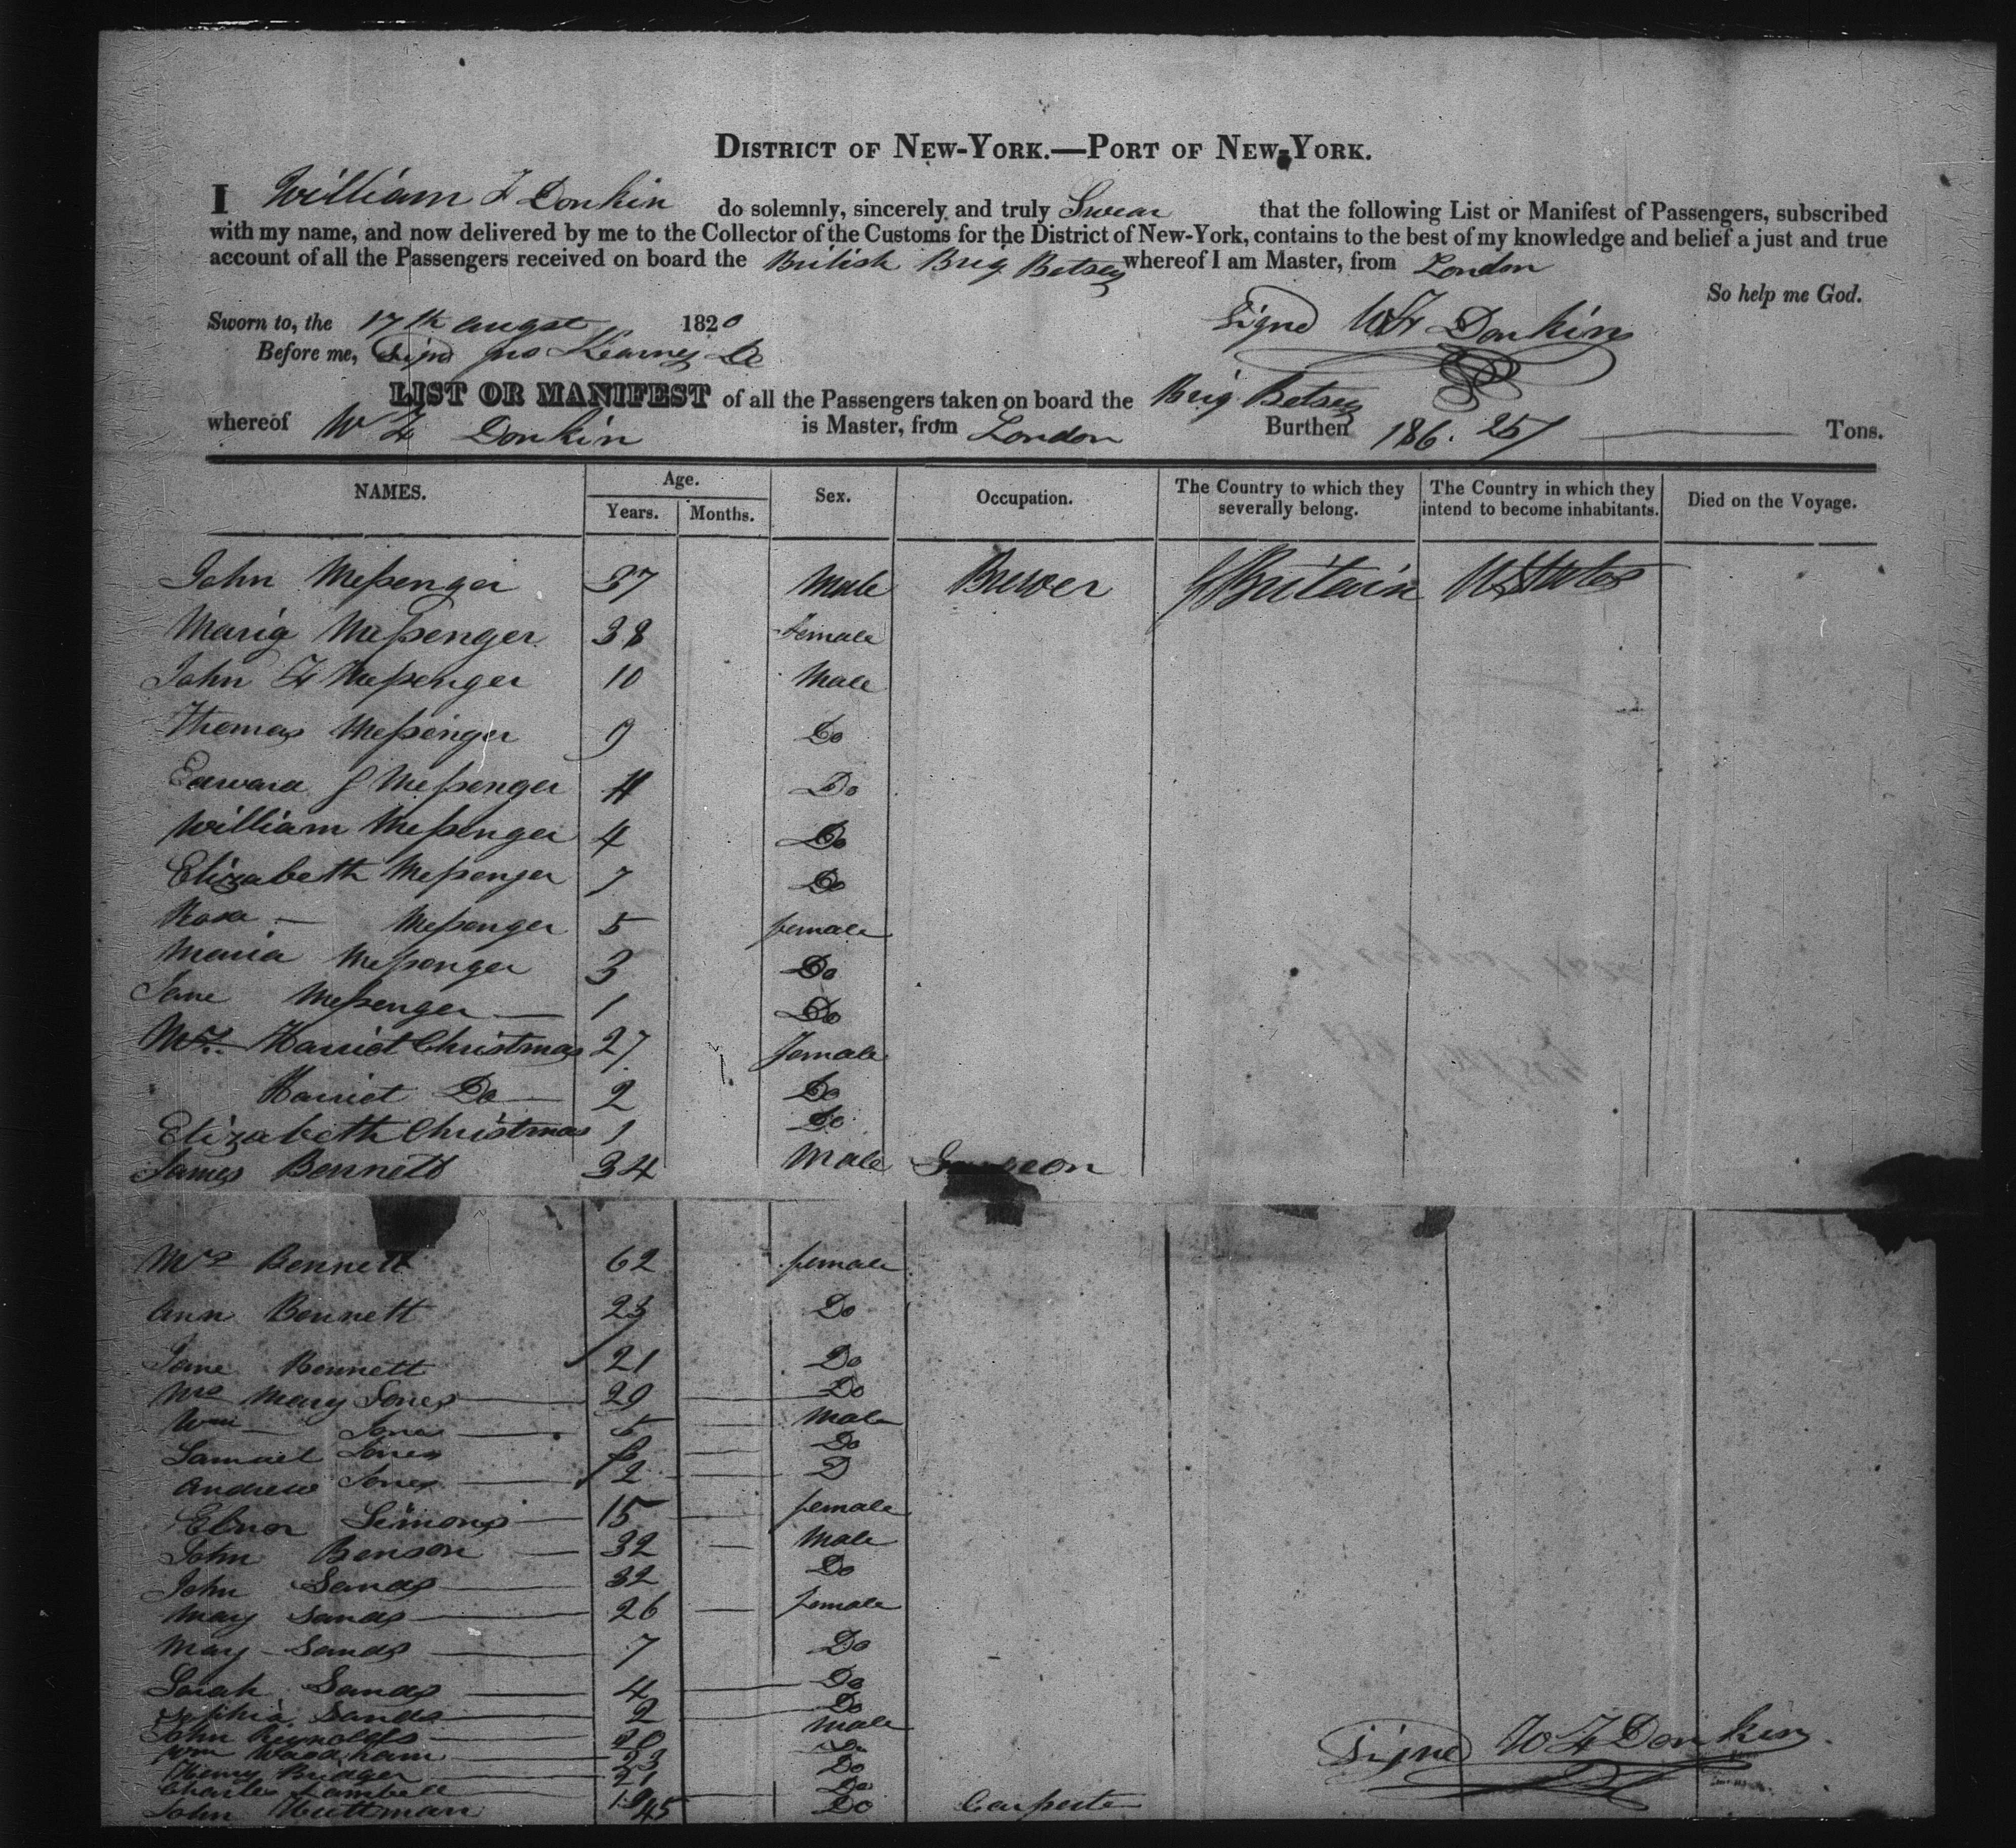 DISTRICT OF NEW-YORK.—PORT OF NEW-YORK.
I William F Donkin do solemnly, sincerely and truly Swear that the following List or Manifest of Passengers, subscribed
with my name, and now delivered by me to the Collector of the Customs for the District of New-York, contains to the best of my knowledge and belief a just and true
account of all the Passengers received on board the British Brig Betsey whereof I am Master, from London
So help me God.
Sworn to, the 17th augst 1820 Signd WF Donkin
Before me, Signd Jno Kearney
LIST OR MANIFEST of all the Passengers taken on board the Brig Betsey
whereof W F Donkin is Master, from London Burthen 186. 25/ Tons.
NAMES. Age. Years. Months. Sex. Occupation. The Country to which they severally belong. The Country in which they intend to become inhabitants. Died on the Voyage.
John Messenger 37 Male Brewer G Britain U States
Maria Messenger 38 female
John F Messenger 10 Male
Thomas Messenger 9 Do
Edward J Messenger Do
William Messenger 4 Do
Elizabeth Messenger 7 Do
Rosa — Messenger 5 female
Maria Messenger 3 Do
Jane Messenger — 1 Do
Mrs. Harriot Christmas 27 female
Harriot Do — 2 Do
Elizabeth Christmas 1 Do
James Bennett 34 Male Surgeon
Mrs Bennett 62 female
Ann Bennett 23 Do
Jane Bennett 21 Do
Mrs Mary Jones 29 Do
Wm — Jones 5 Male
Samuel Jones Do
Andrew Jones 2 D
Elnor Simons 15 female
John Benson 32 Male
John Sands 32 Do
Mary Sands 26 female
Mary Sands 7 Do
Sarah Sands 4 Do
Sophia Sands 2 Do
John Reynolds 20 Male
Wm Woodham 23 Do
Henry Bridger 21 Do
Charles Lambell 19 Do
John 45 Do Carpenter
Signd W F Donkin